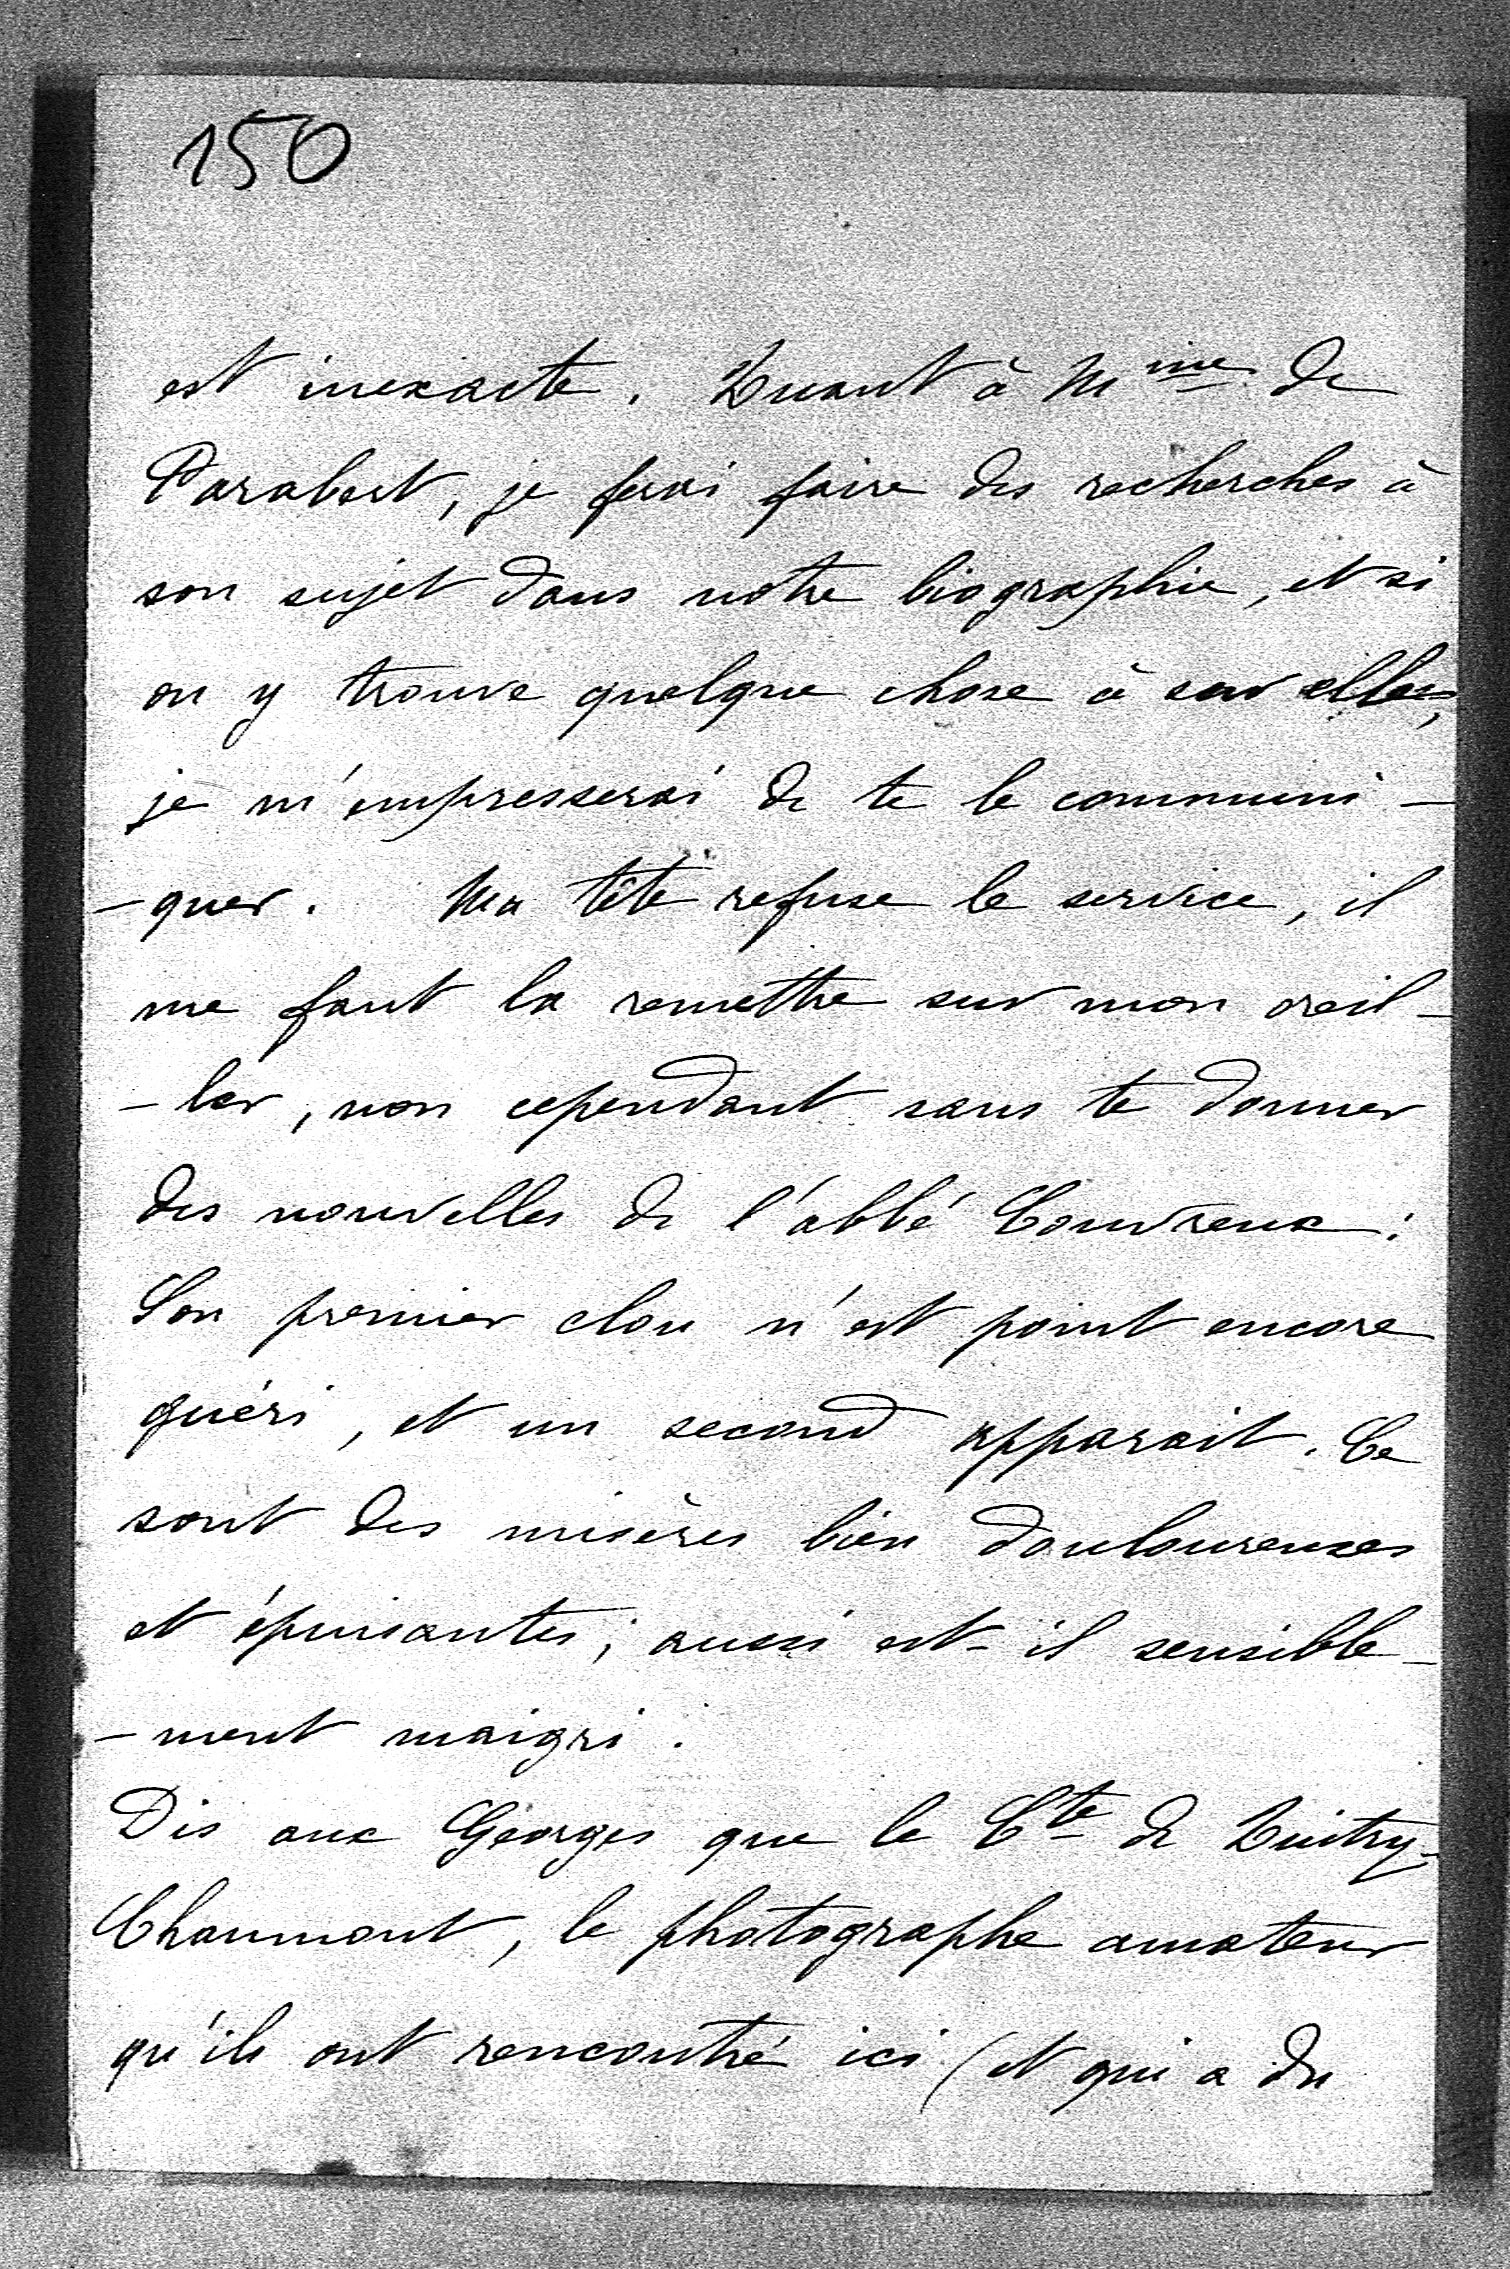 150
est inexacte. Quant à Mme de
Parabert, je ferai faire des recherches à
son sujet dans notre biographie, et si
on y trouve quelque chose à sur elle,
je m'empresserai de te le communi-
-quer. Ma tête refuse le service, il
me faut la remettre sur mon oreil-
-ler, non cependant sans te donner
des nouvelles de l'abbé Couvreux:
Son premier clou n'est point encore
guéri, et un second apparait. Ce
sont des misères bien douloureuses
et épuisantes; aussi est-il sensible-
-ment maigri.
Dis aux Georges que le Cte de Quitry-
Chaumont, le photographe amateur
qu'ils ont rencontré ici (et qui a du